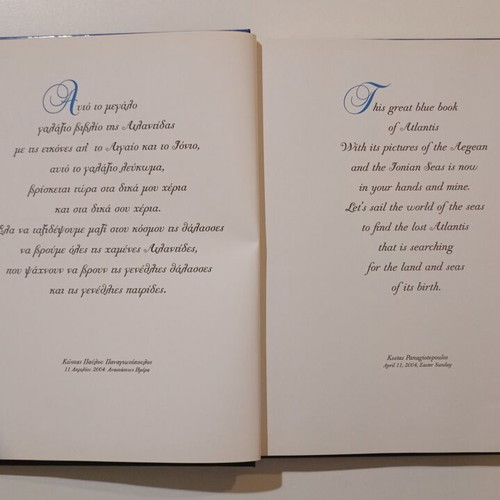 Αυτό το μεγάλο
γαλάζιο βιβλίο της Ατλαντίδας
με τις εικόνες απ' το Αιγαίο και το Ιόνιο,
αυτό το γαλάζιο λεύκωμα,
βρίσκεται τώρα στα δικά μου χέρια
και στα δικά σου χέρια.
Έλα να ταξιδέψουμε μαζί στου κόσμου τις θάλασσες
να βρούμε όλες τις χαμένες Ατλαντίδες,
που ψάχνουν να βρουν τις γενέθλιες θάλασσες
και τις γενέθλιες πατρίδες.
Κώστας Παύλος Παναγιωτόπουλος
11 Απριλίου 2004. Αναστάσεως Ημέρα
This great blue book
of Atlantis
With its pictures of the Aegean
and the Ionian Seas is now
in your hands and mine.
Let's sail the world of the seas
to find the lost Atlantis
that is searching
for the land and seas
of its birth.
Kostas Panagiotopoulos
April 11, 2004, Easter Sunday